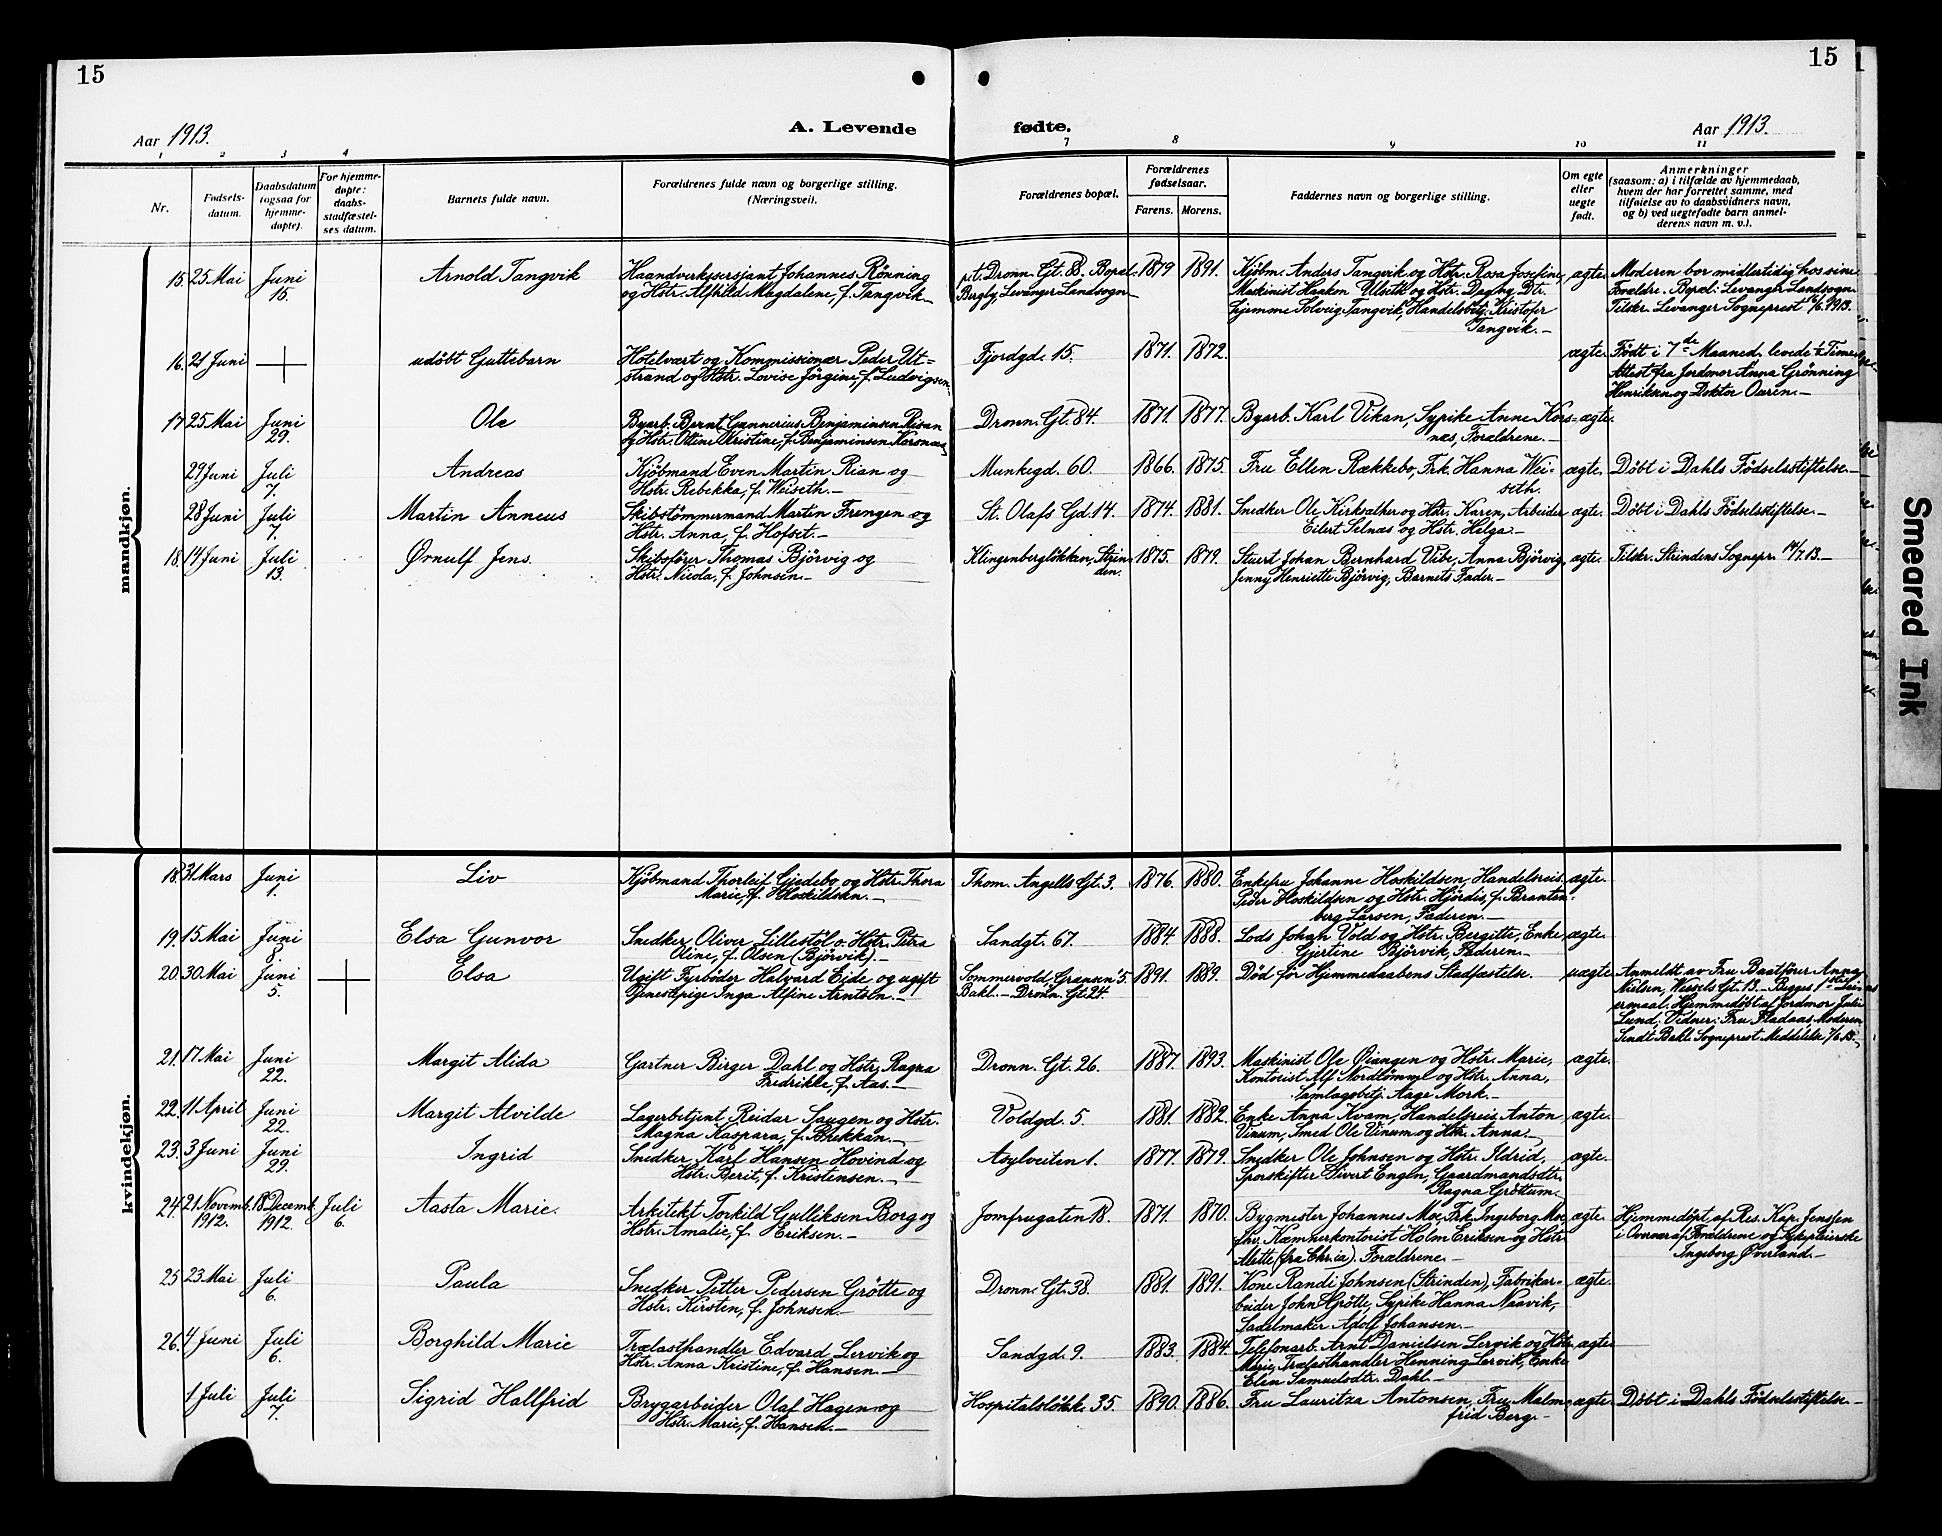 15
15
Aar 1913.
A. Levende
fødte.
Aar 1913.
1 2 3 4 7 8 9 10 11
Nr.
Fødsels-
datum.
Daabsdatum
(ogsaa for
hjemme-
døpte).
For hjemme-
døpte:
daabs-
stadfæstel-
ses datum.
Barnets fulde navn.
Forældrenes fulde navn og borgerlige stilling.
(Næringsvei).
Forældrenes bopæl.
Forældrenes
fødselsaar.
Farens. Morens.
Faddernes navn og borgerlige stilling.
Om egte
eller
uegte
født.
Anmerkninger
(saasom: a) i tilfælde av hjemmedaab,
hvem der har forrettet samme, med
tilføielse av to daabsvidners navn,
og b) ved uegtefødte barn anmel-
derens navn m. v.).
mandkjøn.
15. 25 Mai
Juni
15.
Arnold Tangvik
Haandverkssersjant Johannes Rønning
og Hstr. Alfhild Magdalene, f. Tangvik.—
pt. Dronn. Gt. 88. Bopæl
Bergby Levanger Landsogn
1879 1891.
Kjöbm. Anders Tangvik og Hstr. Rosa Josefine,
Maskinist Haakon Ulseth og Hstr. Dagny, Dtr.
hjemme Solveig Tangvik, Handelsbetj. Kristofer
Tangvik.—
ægte.
Moderen bor midlertidig hos sine
Forældre. Bopæl: Levanger Landsogn.
Tilskr. Levanger Sogneprest 16/6.1913.
16. 21 Juni
udöbt Guttebarn
Hotelvært og Kommissionær Peder Ut=
strand og Hstr. Lovise Jörgine, f. Ludvigsen
Fjordgd. 15.
1871. 1872.
ægte.
Født i 7de Maaned, levede ½ Time
Attest fra Jordmor Anna Grönning
Henriksen og Doktor Ouren.—
17 25 Mai
Juni
29.
Ole
Byarb. Bernt Gunnerius Benjaminsen Risan
og Hstr. Oline Kristine, f. Benjaminsen Korsnæs
Dronn. Gt. 84.
1871. 1877.
Byarb. Karl Vikan, Sypike Anne Kors=
næs, Forældrene.—
ægte.
29 Juni
Juli
7.
Andreas
Kjöbmand Even Martin Rian og
Hstr. Rebekka, f. Weiseth.—
Munkegd. 60.
1866. 1875.
Fru Ellen Rækkebo, Frk. Hanna Wei=
seth.
ægte.
Döbt i Dahls Födselsstiftelse.—
28 Juni
Juli
7.
Martin Anneus
Skibstömmermand Martin Frengen og
Hstr. Anna, f. Hofset.—
St. Olafs Gd. 14.
1874. 1881.
Snedker Ole Kirksæther og Hstr. Karen, Arbeider
Eilert Selnæs og Hstr. Helga.—
ægte.
Döbt i Dahls Födselsstiftelse.—
18. 14 Juni
Juli
13.
Ørnulf Jens.
Skibsförer Thomas Björvig og
Hstr. Nicola, f. Johnsen.—
Klingenberglökken, Strin=
den.
1875. 1879.
Stuert Johan Bernhard Vibe, Anna Björvig,
Jenny Henriette Björvig, Barnets Fader.—
ægte.
Tilskr. Strindens Sognepr. 14/7.13.—
kvindekjøn.
18. 31 Mars
Juni
1.
Liv
Kjöbmand Thorleif Gjedebo og Hstr. Thora
Marie, f. Hoskildsen.—
Thom. Angells Gt. 3.
1876. 1880.
Enkefru Johanne Hoskildsen, Handelsreis.
Peder Hoskildsen og Hstr. Hjördis, f. Branten=
berg Larsen, Faderen.—
ægte.
19. 15 Mai
Juni
8.
Elsa Gunvor
Snedker Oliver Lillestöl o. Hstr. Petra
Oline, f. Olsen (Björvik).—
Sandgt. 67.
1884. 1888.
Lods Johan Vold og Hstr. Bergitte, Enke
Gjertine Björvik, Faderen.—
ægte.
20. 30 Mai
Juni
5.
Elsa
Ugift Fyrböder Halvard Eide og ugift
Tjenestepige Inga Alfine Arntsen.—
Sommervold, Grænsen 5.
Bakl.— Dronn. Gt. 24.
1891. 1889.
Död för Hjemmedaabens Stadfæstelse.
uægte
Anmeldt av Fru Baatförer Anna
Nielsen, Wessels Gt. 13.— Begges 1ste Leier=
ermaal. Hjemmedöbt af Jordmor Julie
Lund. Vidner: Fru Fladaas, Moderen
Sendt Bakl. Sogneprest Meddelelse 7/6.13.—
21. 17 Mai
Juni
22.
Margit Alida
Gartner Birger Dahl og Hstr. Ragna
Fredrikke, f. Aas.—
Dronn. Gt. 26.
1887. 1893.
Maskinist Ole Øiangen og Hstr. Marie,
Kontorist Alf Nordtömme og Hstr. Anna,
Samlagsbetj. Aage Mork.—
ægte.
22. 11 April
Juni
22.
Margit Alvilde
Lagerbetjent Reidar Saugen og Hstr.
Magna Kaspara, f. Brekkan.—
Voldgd. 5.
1881. 1882.
Enke Anna Kvam, Handelsreis. Anton
Vinum, Smed Ole Vinum og Hstr. Anna.—
ægte.
23. 3 Juni
Juni
29.
Ingrid
Snedker Karl Hansen Hovind og
Hstr. Berit, f. Kristensen.—
Asylveiten 1.
1877. 1879.
Snedker Ole Johnsen og Hstr. Ildrid,
Sporskifter Sivert Engen, Gaardmandsdtr.
Ragna Gröttum.
ægte.
24. 21 Novemb.
1912.
18 Decemb.
1912.
Juli
6.
Aasta Marie.
Arkitekt Torkild Gulliksen Borg og
Hstr. Amalie, f. Eriksen.—
Jomfrugaten 18.
1871. 1870.
Bygmester Johannes Moe, Frk. Ingeborg Moe,
fhv. Kæmnerkontorist Holm Eriksen og Hstr.
Alette (fra Chr.ia). Forældrene.—
ægte.
Hjemmedöpt af Res. Kap. Jenssen
i Overvær af Forældrene og Sykepleierske
Ingeborg Øverland.—
25. 23 Mai
Juli
6.
Paula
Snedker Petter Pedersen Grötte og
Hstr. Kirsten, f. Johnsen.—
Dronn. Gt. 38.
1881. 1891.
Kone Randi Johnsen (Strinden), Fabrikar=
beider John Grötte, Sypike Hanna Naavik,
Sadelmaker Adolf Johansen.—
ægte.
26. 4 Juni
Juli
6.
Borghild Marie
Trælasthandler Edvard Lervik og
Hstr. Anna Kristine, f. Hansen.—
Sandgd. 9.
1883. 1884.
Telefonarb. Arnt Danielsen Lervik og Hstr.
Marie, Trælasthandler Henning Lervik, Enke
Elen Samuelsdtr. Dahl.—
ægte
1 Juli
Juli
7.
Sigrid Hallfrid
Brygarbeider Olaf Hagen og
Hstr. Marie, f. Hansen.—
Hospitalslökk. 35.
1890. 1886.
Fru Lauritza Antonsen, Fru Malm=
frid Berg.—
ægte
Döbt i Dahls Födselsstiftelse.—
Smeared Ink